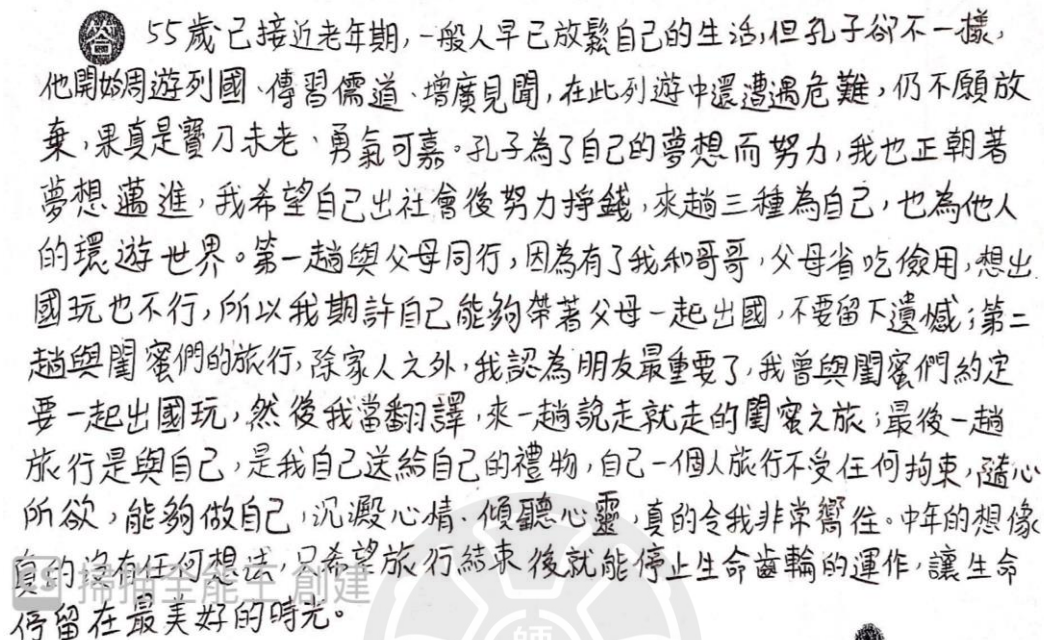 答 55歲已接近老年期，一般人早已放鬆自己的生活，但孔子卻不一樣，
他開始周遊列國、傳習儒道、增廣見聞，在此列遊中還遭遇危難，仍不願放
棄，果真是寶刀未老、勇氣可嘉。孔子為了自己的夢想而努力，我也正朝著
夢想邁進，我希望自己出社會後努力掙錢，來趟三種為自己，也為他人
的環遊世界。第一趟與父母同行，因為有了我和哥哥，父母省吃儉用，想出
國玩也不行，所以我期許自己能夠帶著父母一起出國，不要留下遺憾；第二
趟與閨蜜們的旅行，除家人之外，我認為朋友最重要了，我曾與閨蜜們約定
要一起出國玩，然後我當翻譯，來一趟說走就走的閨蜜之旅；最後一趟
旅行是與自己，是我自己送給自己的禮物，自己一個人旅行不受任何拘束，隨心
所欲，能夠做自己，沉澱心情、傾聽心靈，真的令我非常嚮往。中年的想像
真的沒有任何想法，只希望旅行結束後就能停止生命齒輪的運作，讓生命
停留在最美好的時光。
掃描全能王 創建
師